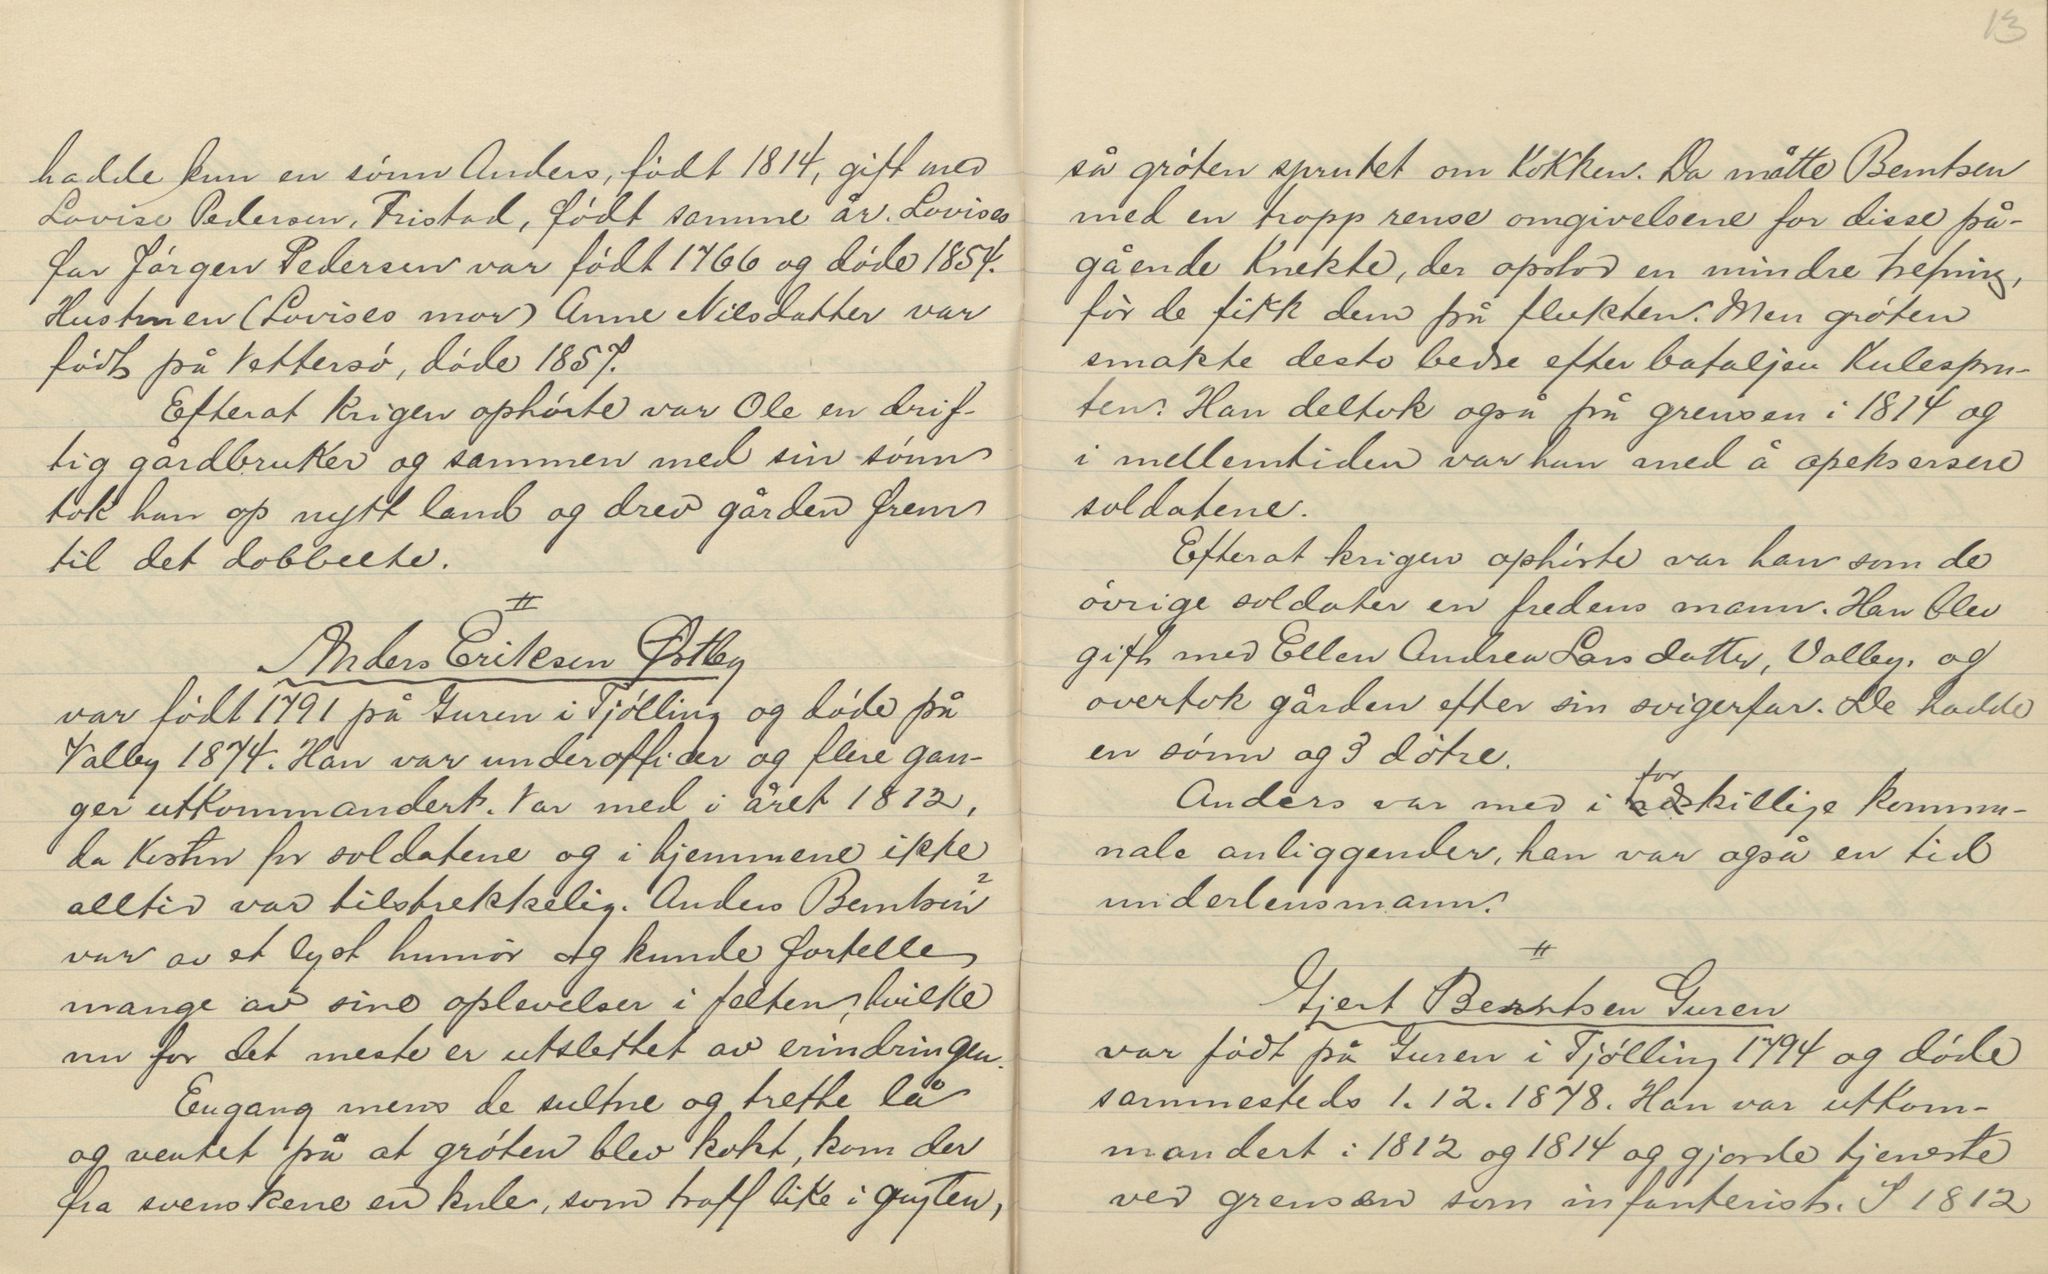 hadde kun en sønn Anders, født 1814, gift med
Lovise Pedersen, Fristad, født samme år. Lovises
far Jørgen Pedersen var født 1766 og døde 1854.
Hustruen (Lovises mor) Anne Nilsdatter var
født på Vettersø, døde 1857.
Efterat krigen ophørte var Ole en drif-
tig gårdbruker og sammen med sin sønn
tok han op nytt land og drev gården frem
til det dobbelte.
II
Anders Eriksen Østby
var født 1791 på Guren i Tjølling og døde på
Valby 1874. Han var underofficer og flere gan-
ger utkommandert. Var med i året 1812,
da kosten for soldatene og i hjemmene ikke
alltid var tilstrekkelig. Anders Berntsen 2
var av et lyst humør og kunde fortelle
mange av sine oplevelser i felten, hvilke
nu for det meste er utslettet av erindringen.
Engang mens de sultne og trette lå
og ventet på at grøten blev kokt, kom der
fra svenskene en kule, som traff like i gryten,
13
så grøten sprutet om kokken. Da måtte Berntsen
med en tropp rense omgivelsene for disse på-
gående knekte, der opstod en mindre trefning,
før de fikk dem på flukten. Men grøten
smakte desto bedre efter bataljen kulespru-
ten. Han deltok også på grensen i 1814 og
i mellemtiden var han med å opeksersere
soldatene.
Efterat krigen ophørte var han som de
øvrige soldater en fredens mann. Han blev
gift med Ellen Andrea Larsdatter, Valby. og
overtok gården efter sin svigerfar. De hadde
en sønn og 3 døtre.
Anders var med i forskillige kommu-
nale anliggender, han var også en tid
underlensmann.
II
Gjert Berntsen Guren
var født på Guren i Tjølling 1794 og døde
sammesteds 1. 12. 1878. Han var utkom-
mandert i 1812 og 1814 og gjorde tjeneste
ved grensen som infanterist. I 1812